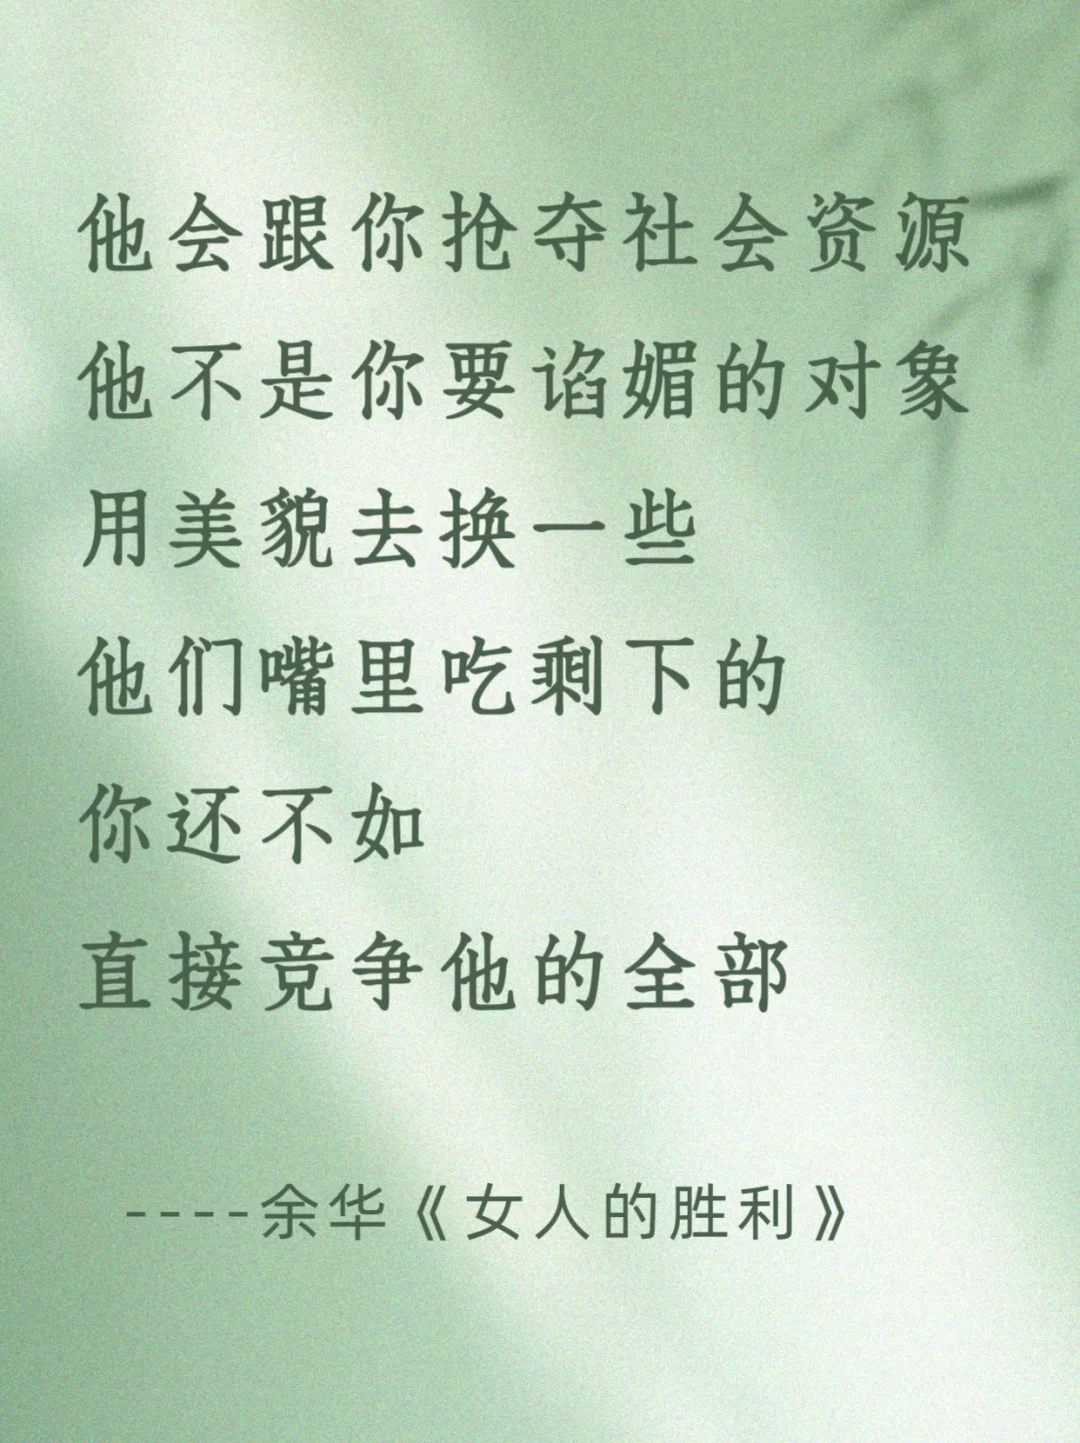 他会跟你抢夺社会资源
他不是你要谄媚的对象
用美貌去换一些
他们嘴里吃剩下的
你还不如
直接竞争他的全部
----余华《女人的胜利》